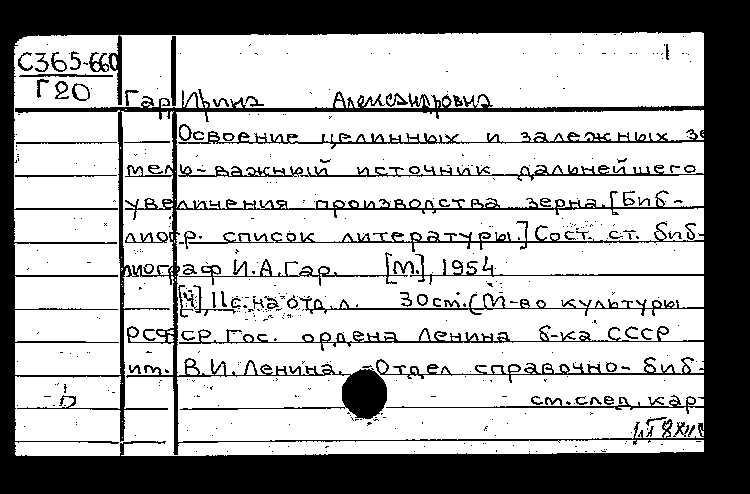 1
С365-660
Г20
Гар, Ирина Александровна
Освоение целинных и залежных зе
мель-важный источник дальнейшего
увеличения производства зерна.[Биб-
лиогр. список литературы.] Сост. ст. биб-
лиограф И.А.Гар. [М.], 1954.
[4], 11с. на отд. л. 30см. (М-во культуры
РСФСР. Гос. ордена Ленина б-ка СССР
им. В.И.Ленина. -Отдел справочно-биб-
см.след.кар